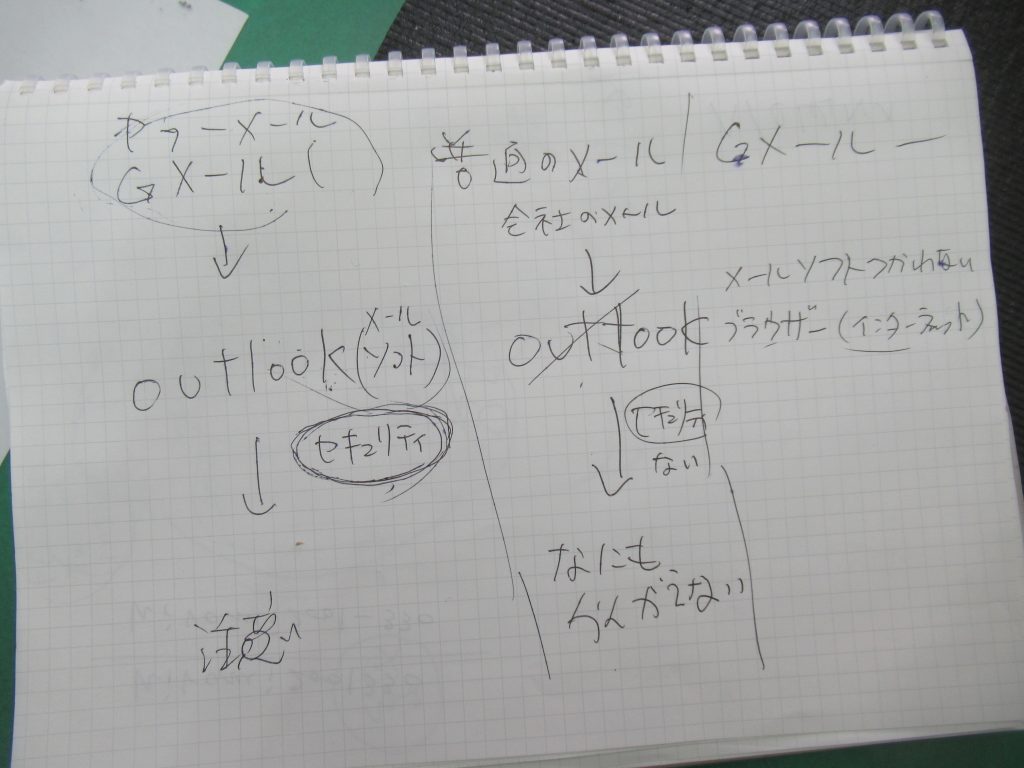 ヤフーメール
Gメール(
outlook(メールソフト)
セキュリティ
注意
普通のメール
会社のメール
outlook
セキュリティ
ない
なにも
でない
Gメール
メールソフトつかわない
ブラウザー(インターネット)